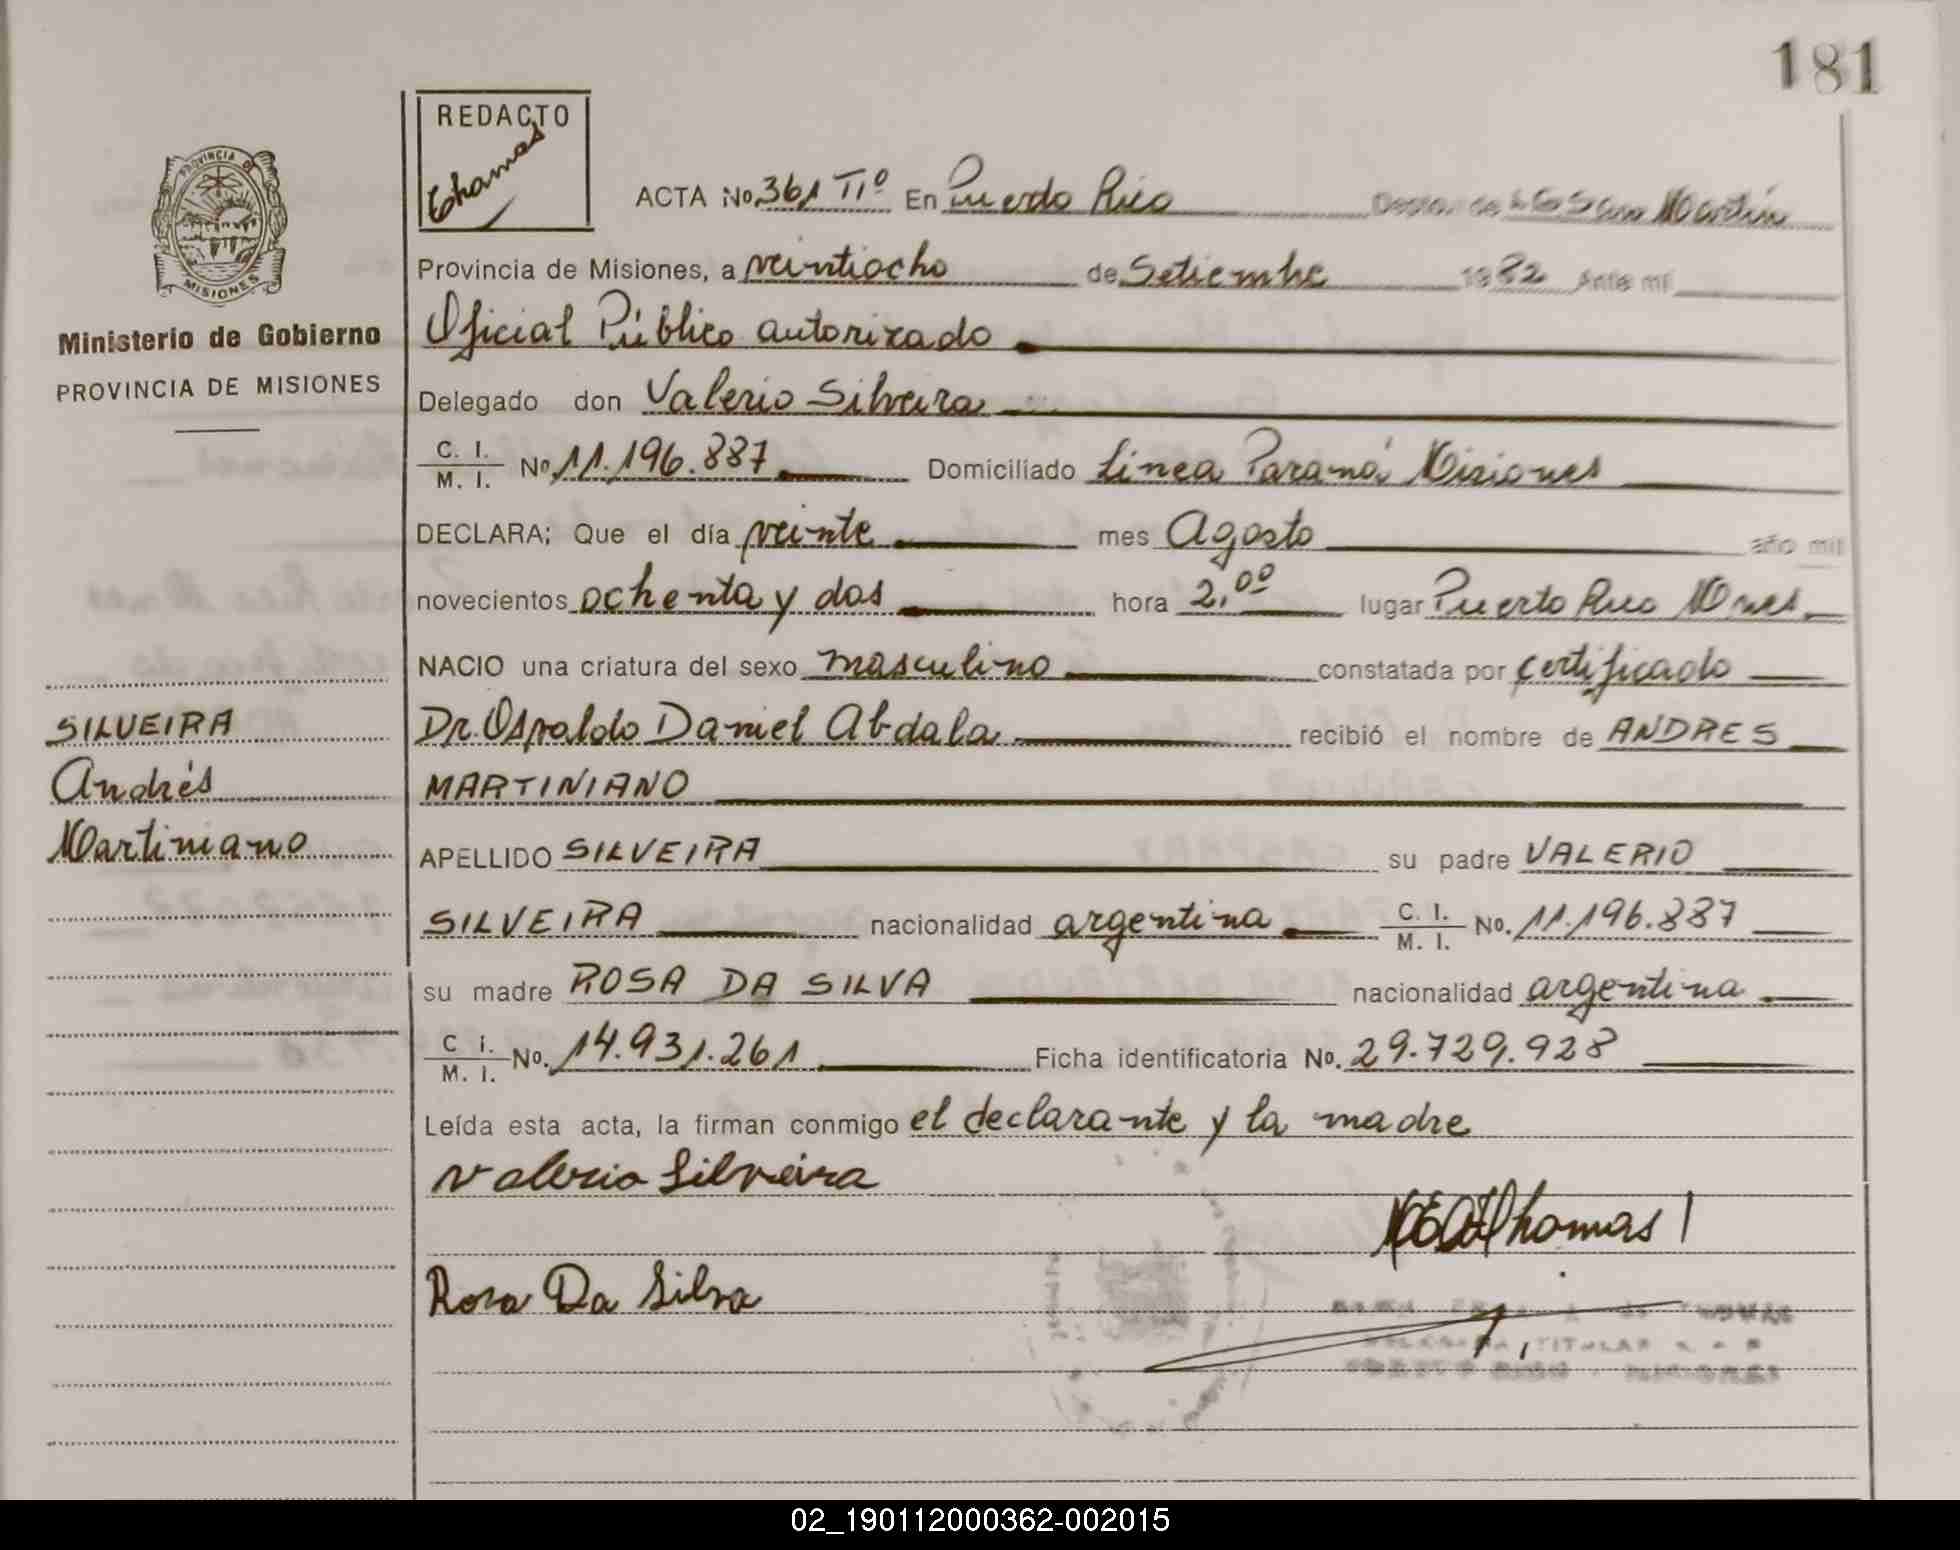 181
REDACTO
Thomas
PROVINCIA DE
MISIONES
Ministerio de Gobierno
PROVINCIA DE MISIONES
ACTA No. 361 TIº En Puerto Rico San Martín
Provincia de Misiones, a veintiocho de Setiembre 1982 Ante mí
Oficial Público autorizado
Delegado don Valerio Silveira
C. I.
M. I. No 11.196.887 Domiciliado Línea Paraná Misiones
DECLARA; Que el día veinte mes Agosto año mil
novecientos ochenta y dos hora 2,00 lugar Puerto Rico Mnes.
NACIO una criatura del sexo masculino constatada por certificado
Dr. Osvaldo Daniel Abdala recibió el nombre de ANDRES
MARTINIANO
SILVEIRA
Andrés
Martiniano
APELLIDO SILVEIRA su padre VALERIO
SILVEIRA nacionalidad argentina C. I.
M. I. No. 11.196.887
su madre ROSA DA SILVA nacionalidad argentina
C I.
M. I. No. 14.931.261 Ficha identificatoria No. 29.729.928
Leída esta acta, la firman conmigo el declarante y la madre
Valerio Silveira
Thomas
Rosa Da Silva
TITULAR
02_190112000362-002015